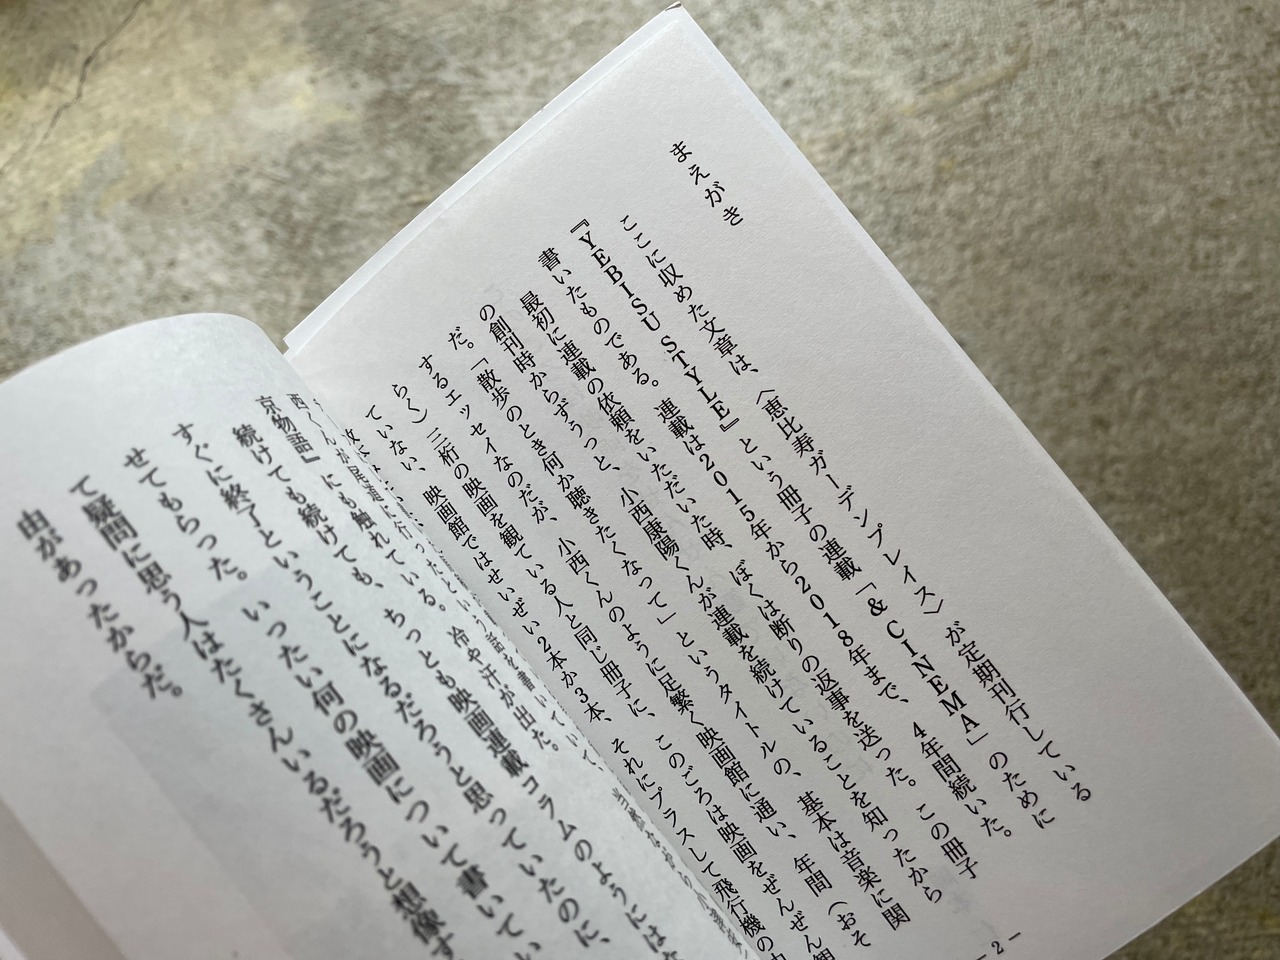 まえがき
ここに収めた文章は、〈恵比寿ガーデンプレイス〉が定期刊行している
『YEBISU STYLE』という冊子の連載「&CINEMA」のために
書いたものである。連載は2015年から2018年まで、4年間続いた。
最初に連載の依頼をいただいた時、ぼくは断りの返事を送った。この冊子
の創刊時からずうっと、小西康陽くんが連載を続けていることを知ったから
だ。「散歩のとき何か聴きたくなって」というタイトルの、基本は音楽に関
するエッセイなのだが、小西くんのように足繁く映画館に通い、年間（おそ
らく）三桁の映画を観ている人と同じ冊子に、このごろは映画をぜんぜん観
ていない、映画館ではせいぜい2本か3本、それにプラスして飛行機の中
－2－
京物語』にも触れている。冷や汗が出た。
続けても続けても、ちっとも映画連載コラムのようにはな
すぐに終了ということになるだろうと思っていたのに、
せてもらった。いったい何の映画について書いてい
て疑問に思う人はたくさんいるだろうと想像す
由があったからだ。